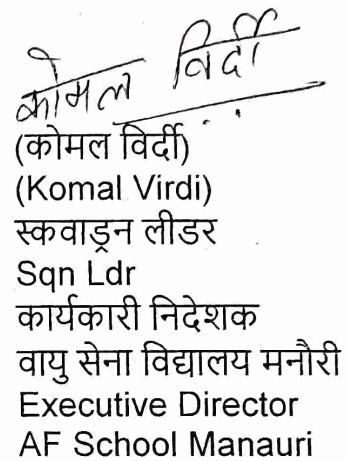 कोमल विर्दी
(कोमल विर्दी)
(Komal Virdi)
स्कवाड्रन लीडर
Sqn Ldr
कार्यकारी निदेशक
वायु सेना विद्यालय मनौरी
Executive Director
AF School Manauri